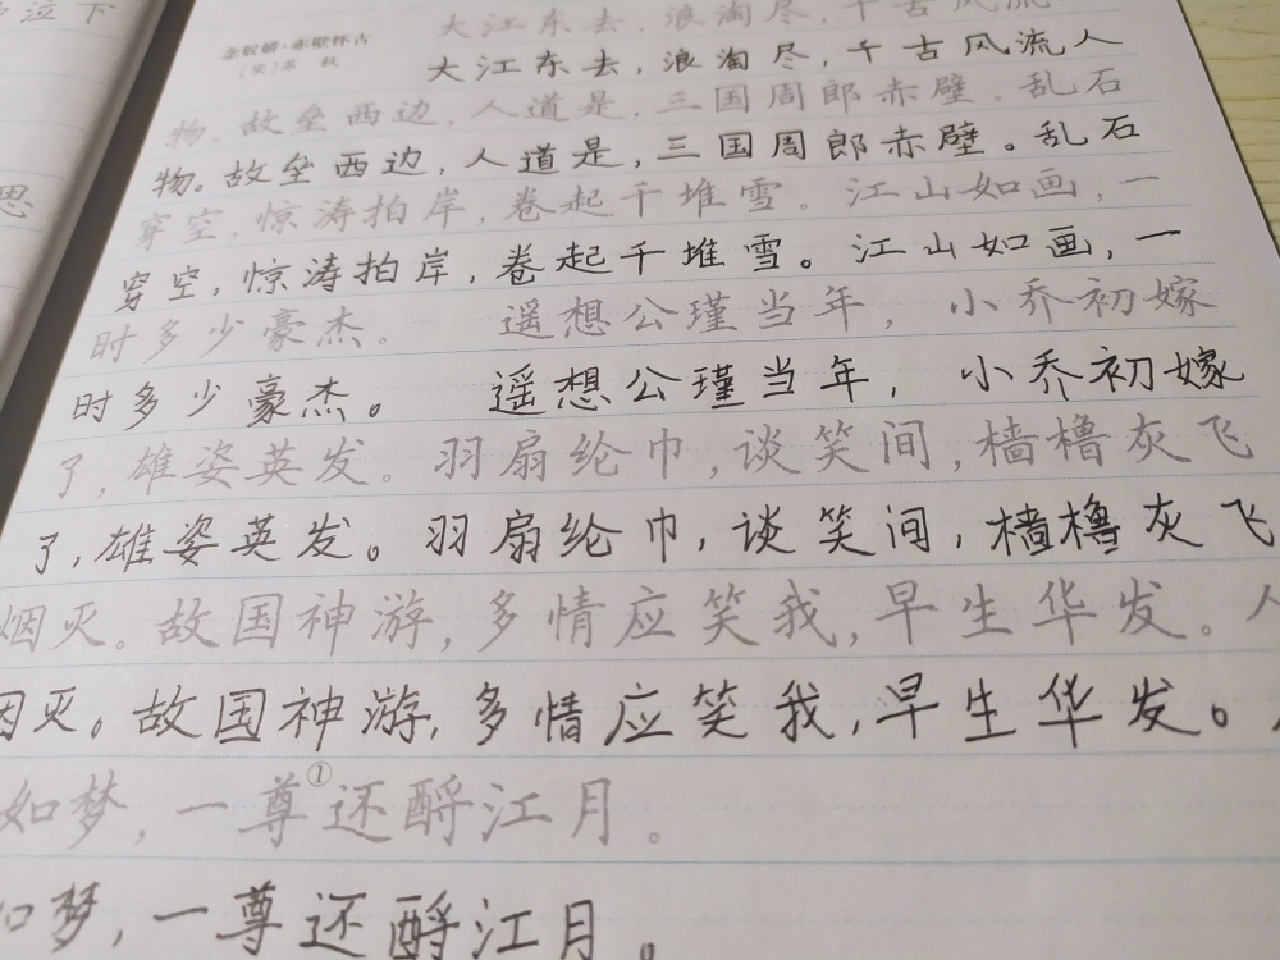 泣下
思
念奴娇·赤壁怀古
（宋）苏轼
大江东去，浪淘尽，千古风流
大江东去，浪淘尽，千古风流人
物。故垒西边，人道是，三国周郎赤壁。乱石
物。故垒西边，人道是，三国周郎赤壁。乱石
穿空，惊涛拍岸，卷起千堆雪。江山如画，一
穿空，惊涛拍岸，卷起千堆雪。江山如画，一
时多少豪杰。 遥想公瑾当年，小乔初嫁
时多少豪杰。 遥想公瑾当年，小乔初嫁
了，雄姿英发。羽扇纶巾，谈笑间，樯橹灰飞
了，雄姿英发。羽扇纶巾，谈笑间，樯橹灰飞
烟灭。故国神游，多情应笑我，早生华发。人
灭。故国神游，多情应笑我，早生华发。
如梦，一尊①还酹江月。
梦，一尊还酹江月。